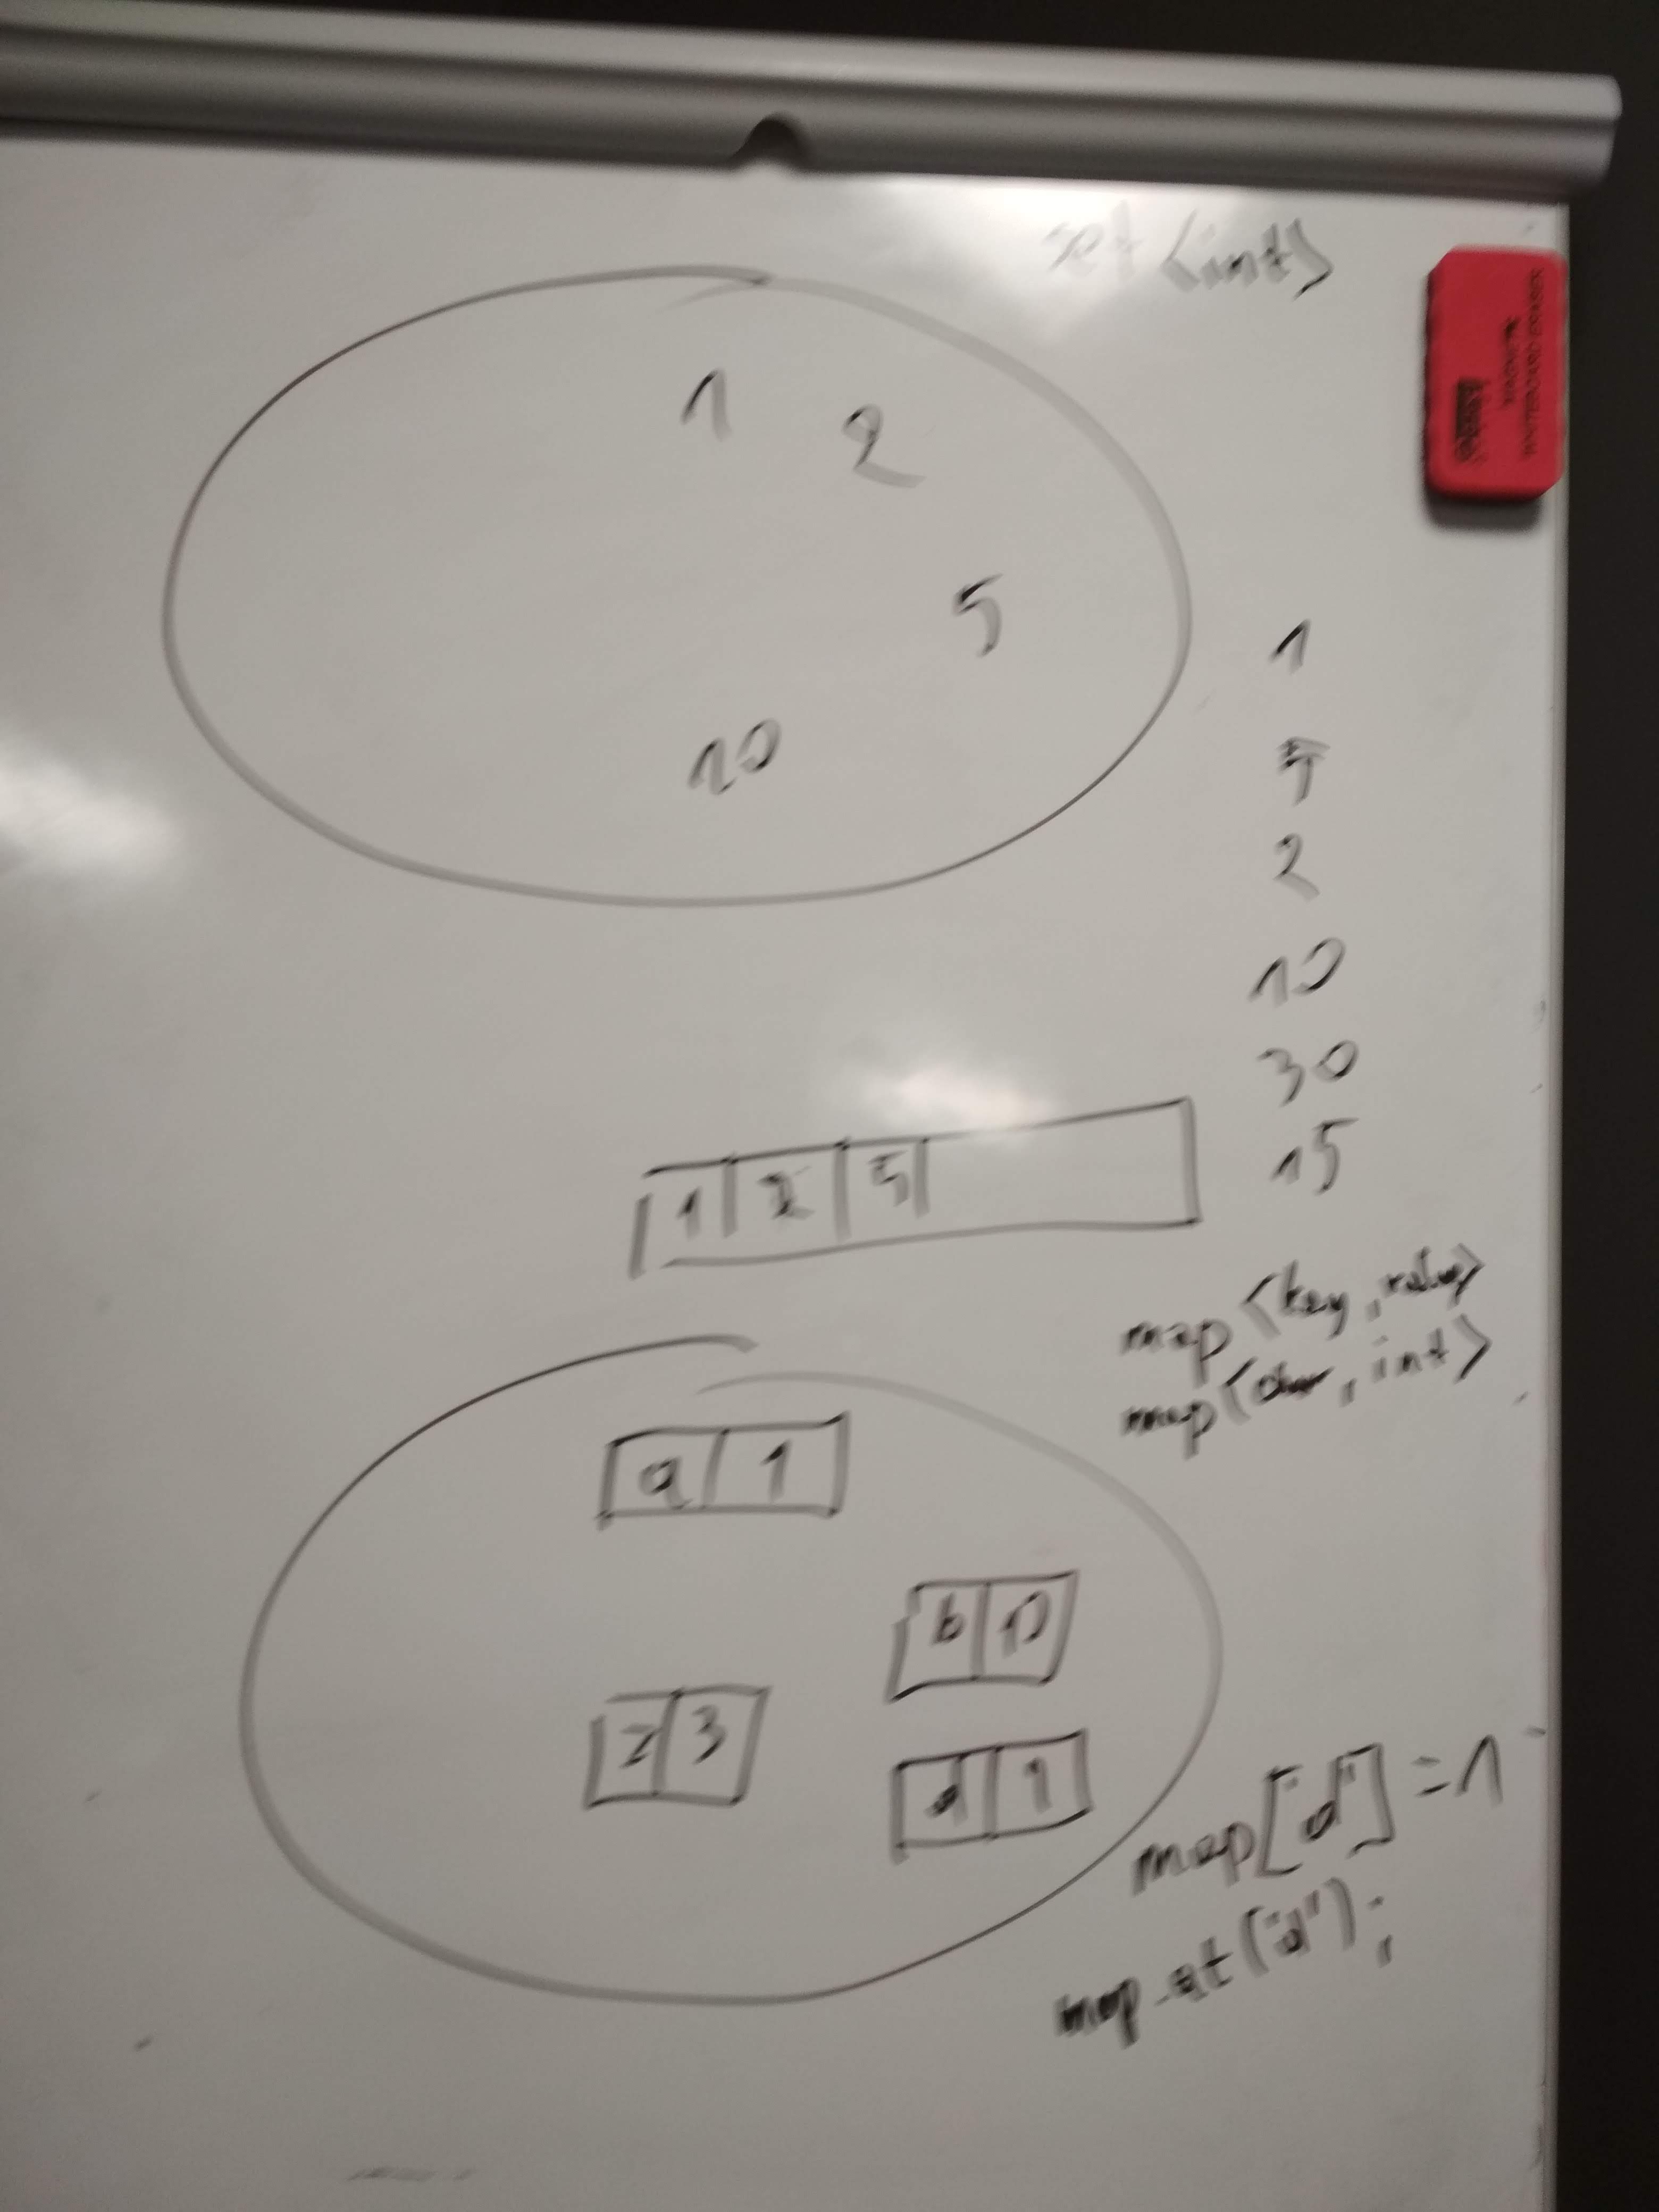 set <int>
1
2
5
10
1
5
2
10
30
15
1 2 5
map <key, value>
map <char, int>
a 1
b 10
z 3
d 1
map["d"] = 1
map.at("d");